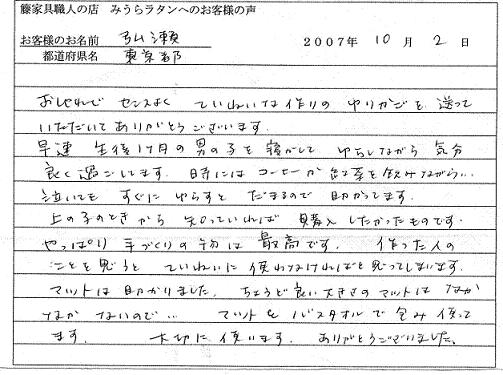 籐家具職人の店 みうらラタンへのお客様の声
お客様のお名前 弘瀬 2007年 10月 2日
都道府県名 東京都
おしゃれで センスよく ていねいな作りの ゆりかごを 送って
いただいてありがとうございます。
早速 生後1ヶ月の男の子を 寝かして ゆらしながら 気分
良く過ごしてます。 時には コーヒーか 紅茶を飲みながら…
泣いても すぐに ゆらすと だまるので 助かってます。
上の子のときから 知っていれば 購入したかったものです。
やっぱり 手づくりの物は 最高です。 作った人の
ことを思うと ていねいに 使わなければと思ってしまいます。
マットは助かりました。 ちょうど良い大きさのマットは なか
なか ないので‥ マットを バスタオルで包み 使って
ます。 大切に使います。 ありがとうございました。